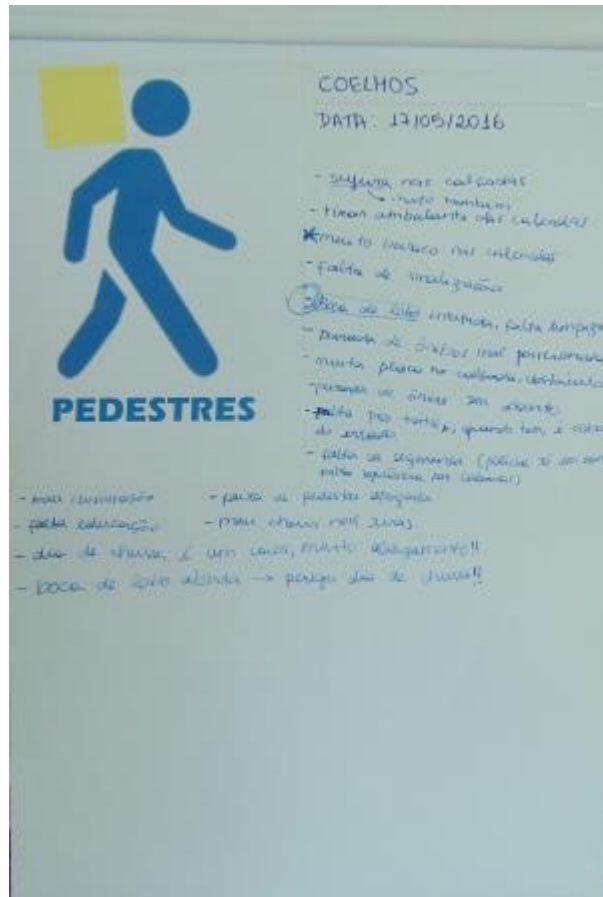 COELHOS
DATA: 17/05/2016
- sujeira nas calçadas
mato também
- tirar ambulante das calçadas
muito buraco nas calçadas
- Falta de sinalização
- Boca de lobo entupida, falta limpeza
- parada de ônibus mal posicionada
- muita placa na calçada, obstáculo
- parada de ônibus sem assento
- falta
- falta de segurança (polícia só
PEDESTRES
- mau iluminação
- faixa de pedestre apagada
- falta educação
- mau cheiro nas ruas
- dia de chuva, é um caos, muito alagamento!!
- boca de lobo aberta → perigo dia de chuva!!